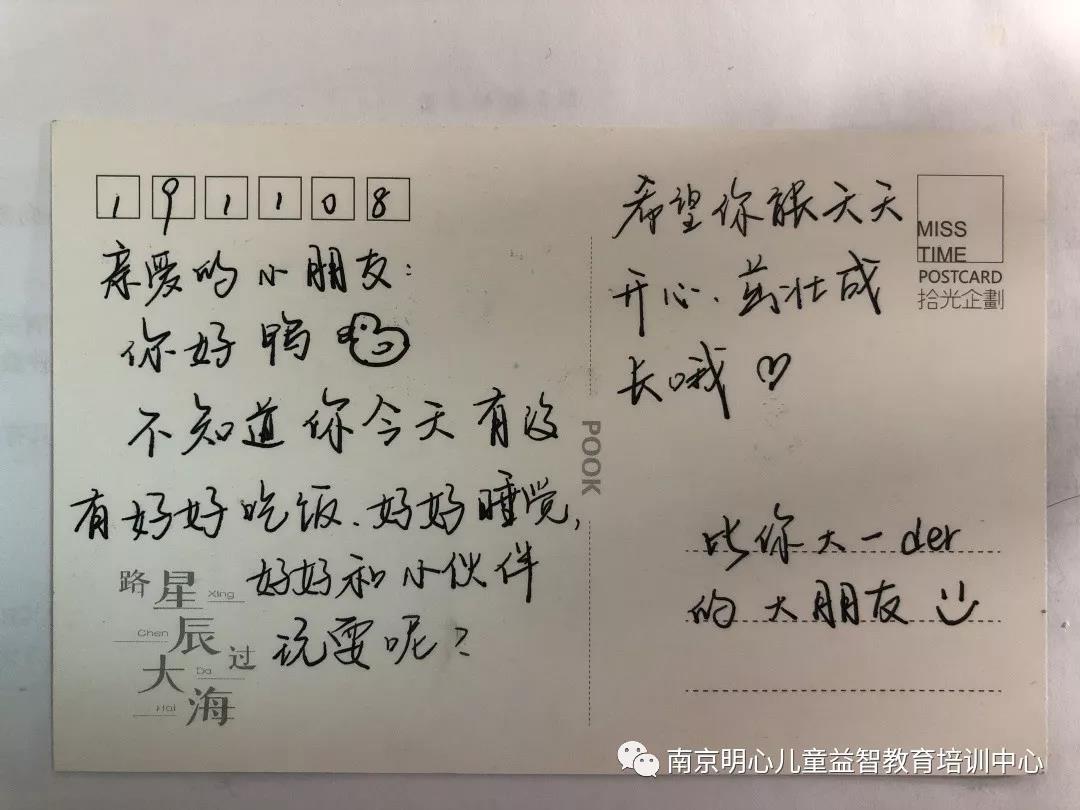 191108
亲爱的小朋友:
你好鸭
不知道你今天有没
有好好吃饭、好好睡觉,
好好和小伙伴
玩耍呢?
路过
星辰大海
Xing
Chen
Da
Hai
POOK
希望你能天天
开心、茁壮成
长哦♡
MISS
TIME
POSTCARD
拾光企劃
比你大一der
的大朋友
南京明心儿童益智教育培训中心